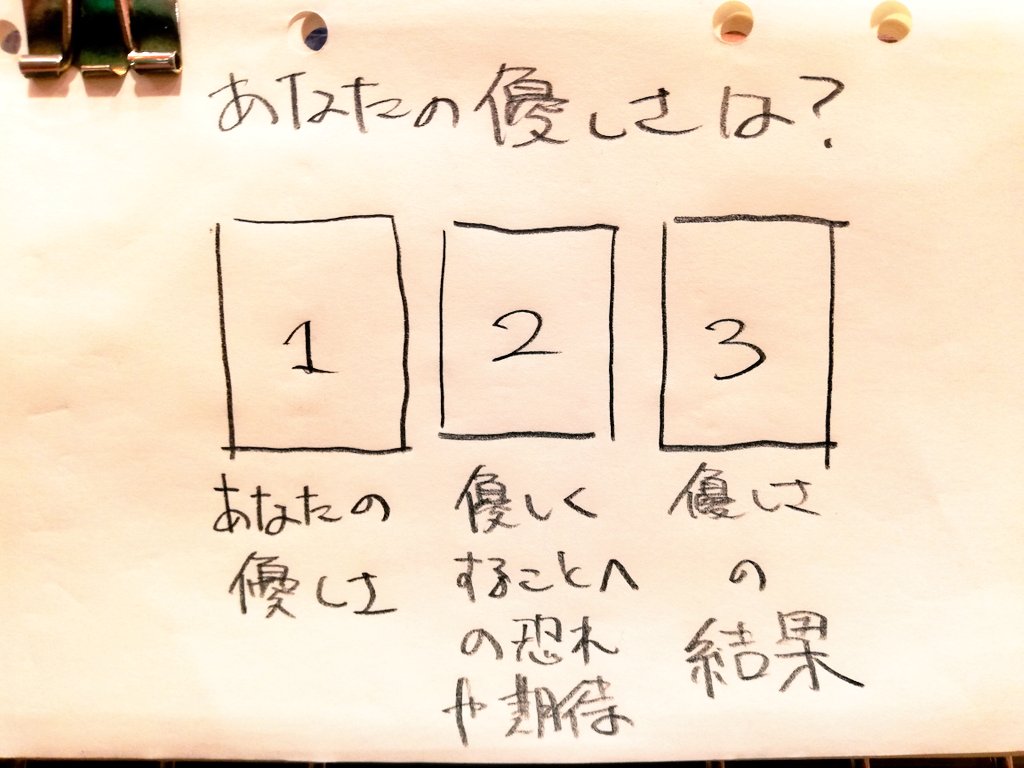 あなたの優しさは?
1
2
3
あなたの
優しさ
優しく
することへ
の恐れ
や期待
優しさ
の
結果